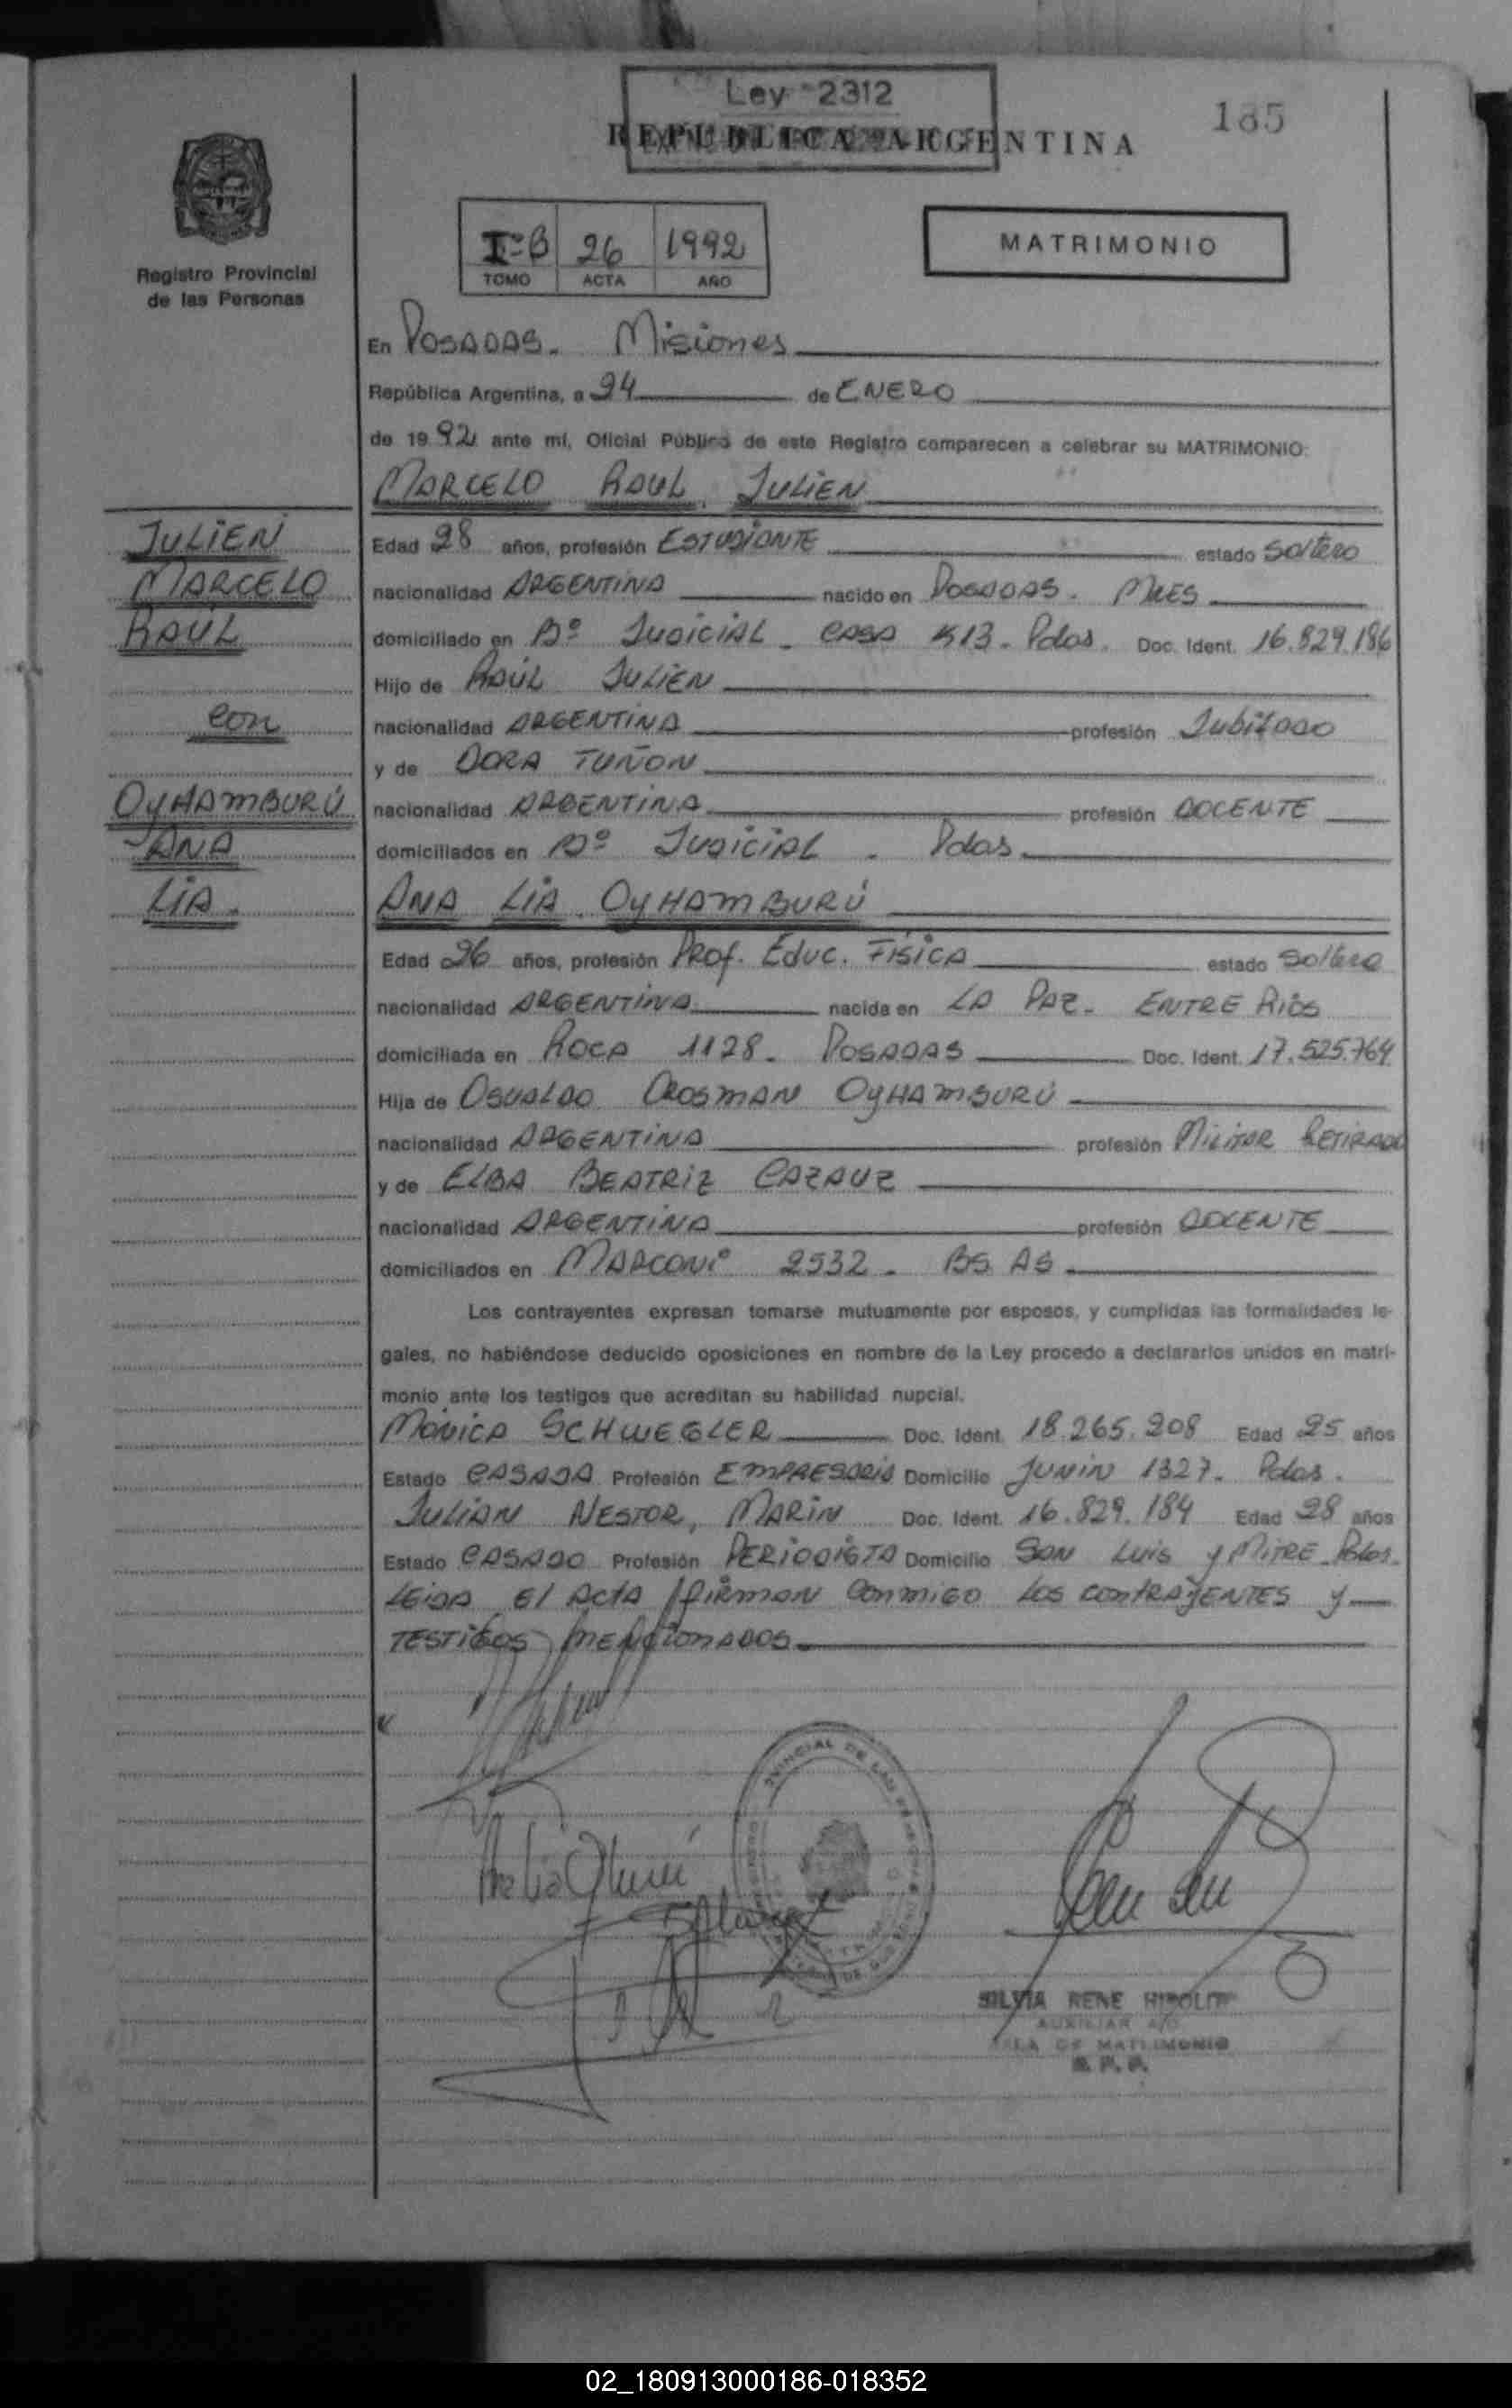 Ley 2312
REPUBLICA ARGENTINA
185
Registro Provincial
de las Personas
Iº-B 26 1992
TOMO ACTA AÑO
MATRIMONIO
En POSADAS. Misiones
República Argentina, a 24 de ENERO
de 1992 ante mí, Oficial Público de este Registro comparecen a celebrar su MATRIMONIO:
MARCELO RAUL JULIEN
JULIEN
MARCELO
RAUL
con
OYHAMBURÚ
ANA
LIA.
Edad 28 años, profesión ESTUDIANTE estado Soltero
nacionalidad ARGENTINA nacido en POSADAS. MNES
domiciliado en Bº JUDICIAL - CASA 513 - Pdas. Doc. Ident. 16.829.186
Hijo de RAÚL JULIEN
nacionalidad ARGENTINA profesión Jubilado
y de DORA TUÑON
nacionalidad ARGENTINA profesión DOCENTE
domiciliados en Bº JUDICIAL . Pdas.
ANA LIA OYHAMBURÚ
Edad 26 años, profesión PROF. EDUC. FÍSICA estado Soltera
nacionalidad ARGENTINA nacida en LA PAZ - ENTRE RÍOS
domiciliada en ROCA 1128. POSADAS Doc. Ident. 17.525.764
Hija de OSVALDO OROSMAN OYHAMBURÚ
nacionalidad ARGENTINA profesión MILITAR RETIRADO
y de ELBA BEATRIZ CAZAUZ
nacionalidad ARGENTINA profesión DOCENTE
domiciliados en MARCONI 2532. BS AS
Los contrayentes expresan tomarse mutuamente por esposos, y cumplidas las formalidades le-
gales, no habiéndose deducido oposiciones en nombre de la Ley procedo a declararlos unidos en matri-
monio ante los testigos que acreditan su habilidad nupcial.
MÓNICA SCHWEGLER Doc. Ident. 18.265.208 Edad 25 años
Estado CASADA Profesión EMPRESARIA Domicilio JUNIN 1327. Pdas.
JULIAN NESTOR, MARIN Doc. Ident. 16.829.184 Edad 28 años
Estado CASADO Profesión PERIODISTA Domicilio SAN LUIS y MITRE. Pdas.
LEIDA El ACTA firman conmigo LOS CONTRAYENTES y
TESTIGOS MENCIONADOS.
SILVIA RENE HIPOLITO
AUXILIAR A/C
SALA DE MATRIMONIO
R. P. P.
02_180913000186-018352